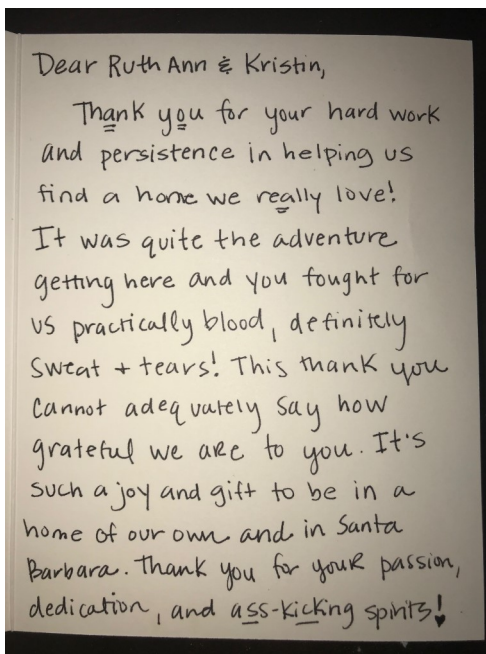 Dear Ruth Ann & Kristin,
Thank you for your hard work
and persistence in helping us
find a home we really love!
It was quite the adventure
getting here and you fought for
us practically blood, definitely
sweat + tears! This thank you
cannot adequately say how
grateful we are to you. It's
such a joy and gift to be in a
home of our own and in Santa
Barbara. Thank you for your passion,
dedication, and ass-kicking spirits!